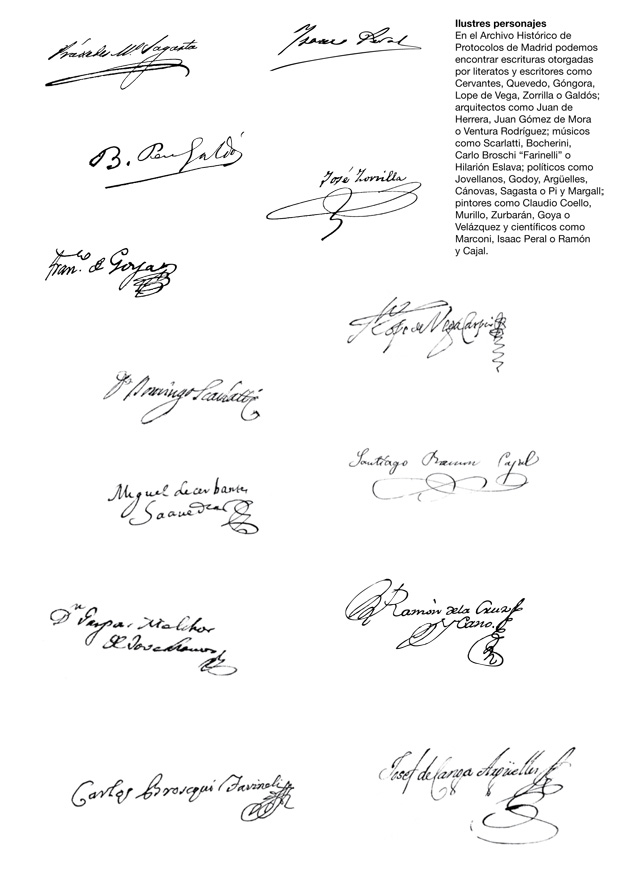 Práxedes M. Sagasta
Isaac Peral
Ilustres personajes
En el Archivo Histórico de
Protocolos de Madrid podemos
encontrar escrituras otorgadas
por literatos y escritores como
Cervantes, Quevedo, Góngora,
Lope de Vega, Zorrilla o Galdós;
arquitectos como Juan de
Herrera, Juan Gómez de Mora
o Ventura Rodríguez; músicos
como Scarlatti, Bocherini,
Carlo Broschi “Farinelli” o
Hilarión Eslava; políticos como
Jovellanos, Godoy, Argüelles,
Cánovas, Sagasta o Pi y Margall;
pintores como Claudio Coello,
Murillo, Zurbarán, Goya o
Velázquez y científicos como
Marconi, Isaac Peral o Ramón
y Cajal.
B. Pérez Galdós
José Zorrilla
Fran.co de Goya
Lope de Vega Carpio
Dn Domingo Scarlatti
Santiago Ramon Cajal
Miguel de cerbantes
Saavedra
Dn Gaspar Melchor
de Jovellanos
Ramón de la Cruz
y Cano.
Carlos Broscqui Farineli
Josef de Canga Argüelles